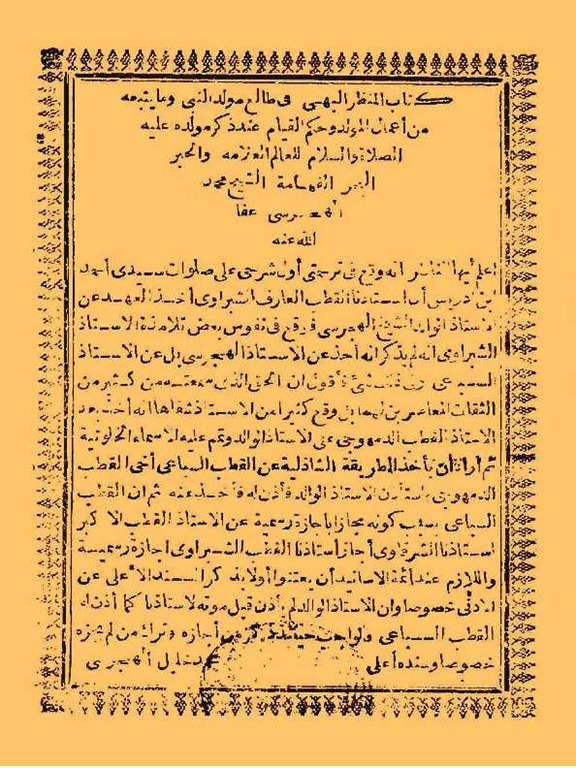 كتاب المنظر البهي في طالع مولد النبي وما يتبعه
من أعمال المولد وحكم القيام عند ذكر مولده عليه
الصلاة والسلام للعالم العلامه والحبر
البحر الفهامة الشيخ محمد
الهجرسى عفا
الله عنه
اعلم أيها الناظر انه وقع فى ترجمتى أول شرحى على صلوات سيدى أحمد
ابن ادريس أن استاذنا القطب العارف الشبراوى أخذ العهد عن
الاستاذ الوالد الشيخ الهجرسى فوقع فى نفوس بعض تلامذة الاستاذ
الشبراوى أنه لم يذكر انه أخذ عن الاستاذ الهجرسى بل عن الاستاذ
السباعى فأقول ان الحق الذى سمعته من كثير من
الثقات المعاصرين لهما بل وقع كثيرا من الاستاذ شفاها انه أخذ بعد
الاستاذ القطب الدمهوجى على الاستاذ الوالد وتمم عليه الاسماء الخلوتية
ثم أراد أن يأخذ الطريقة الشاذلية عن القطب السباعى أخى القطب
الدمهوجى فاستأذن الاستاذ الوالد فأذن له فأخذ عنه ثم ان القطب
السباعى بسبب كونه مجازا باجازة رسمية عن الاستاذ القطب الاكبر
استاذنا الشرقاوى أجاز أستاذنا القطب الشبراوى اجازة رسمية
واللازم عند أئمة الاسانيد أن يعتنوا أولا بذكر السند الاعلى عن
الادنى خصوصا وان الاستاذ الوالد لم يأذن قبل موته لاستاذنا كما أذن له
القطب السباعى والواجب حينئذ ذكر من أجازه وترك من لم يجزه
خصوصا وسنده أعلى محمد خليل الهجرسى